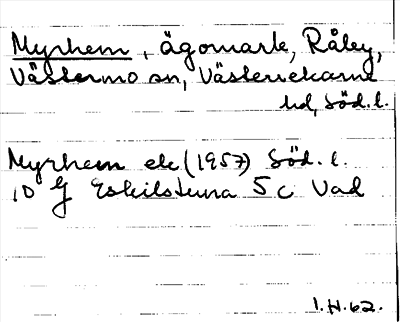 Myrhem, ägomark, Råby,
Västermo sn, Västerrekarne
hd, Söd. l.
Myrhem ek (1957) Söd. l.
10 G Eskilstuna 5 c Vad
I.H.62.